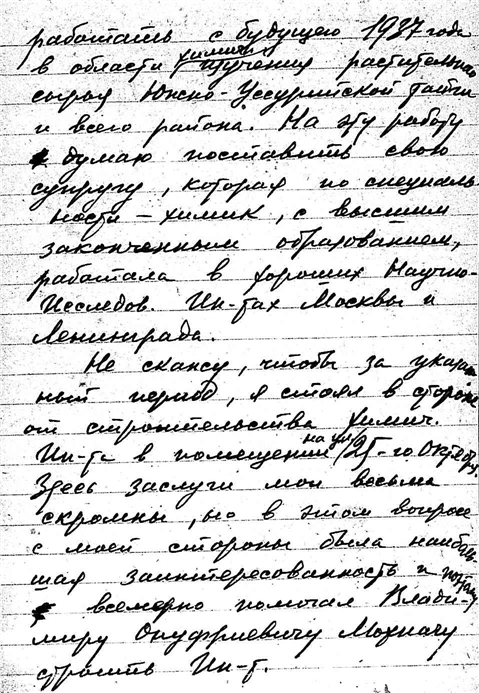 работать с будущего 1937 года
в области химич изучения растительного
сырья Южно-Уссурийской тайги
и всего района. На эту работу
думаю поставить свою
супругу, которая по специаль-
ности – химик, с высшим
законченным образованием,
работала в хороших Научно-
Исследов. Ин-тах Москвы и
Ленинграда.
Не скажу, чтобы за указан
ный период, я стоял в стороне
от строительства химич.
Ин-та в помещении на ул 25-го Октября.
Здесь заслуги мои весьма
скромны, но в этом вопросе
с моей стороны была наиболь-
шая заинтересованность и поэтому
всемерно помогал Влади-
миру Онуфриевичу Мохначу
строить Ин-т.